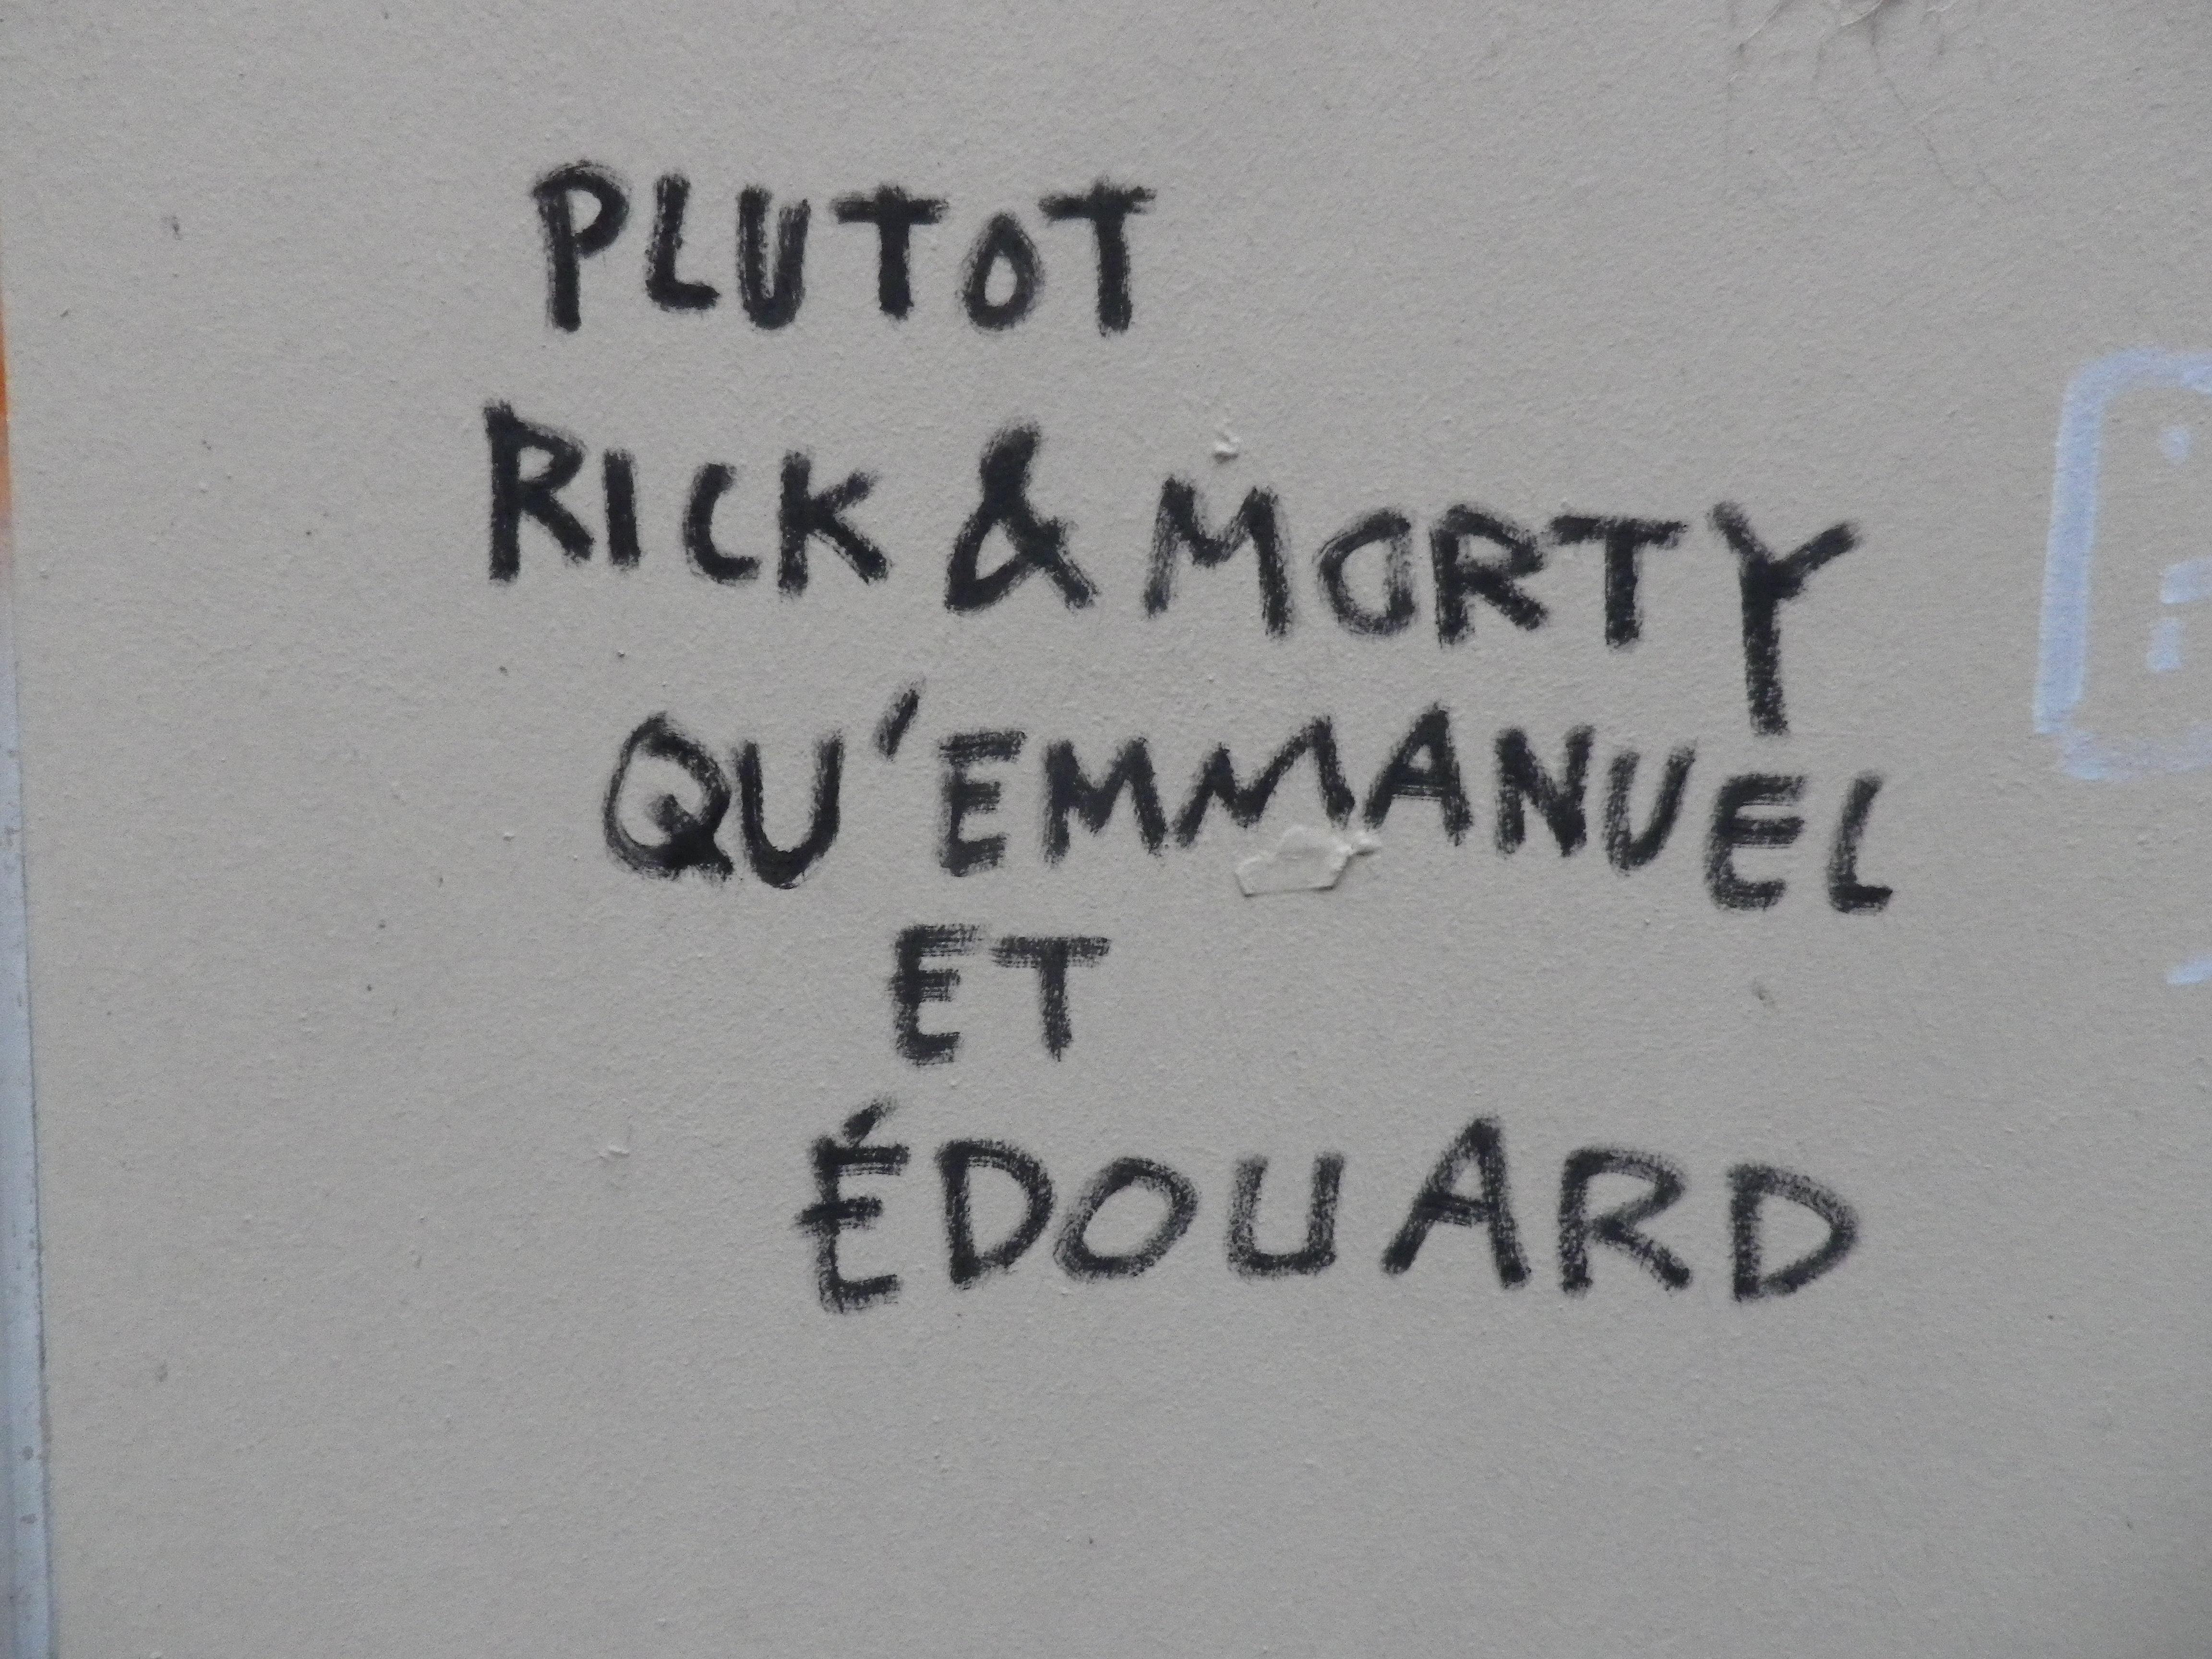 PLUTOT
RICK & MORTY
QU'EMMANUEL
ET
ÉDOUARD